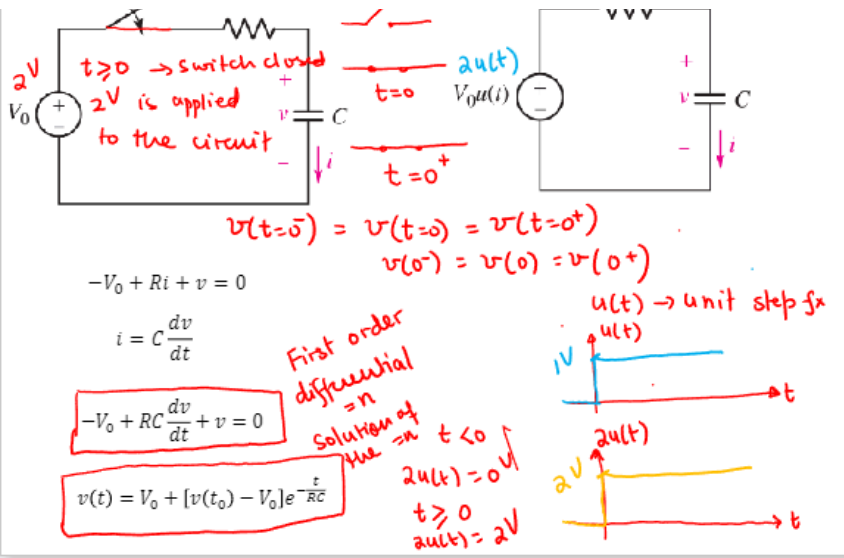 2V
V₀
+
−
t≥0 → switch closed
2V is applied
to the circuit
+
v
−
C
i
t=0
t=0⁺
2u(t)
V₀u(i)
−
−
+
v
−
C
i
v(t=0⁻) = v(t=0) = v(t=0⁺)
v(0⁻) = v(0) = v(0⁺)
−V₀ + Ri + v = 0
i = C dv/dt
−V₀ + RC dv/dt + v = 0
v(t) = V₀ + [v(t₀) − V₀]e^(−t/RC)
First order
differential
=n
solution of
the =n
t<0
2u(t) = 0V
t≥0
2u(t) = 2V
u(t) → unit step fx
u(t)
1V
t
2u(t)
2V
t